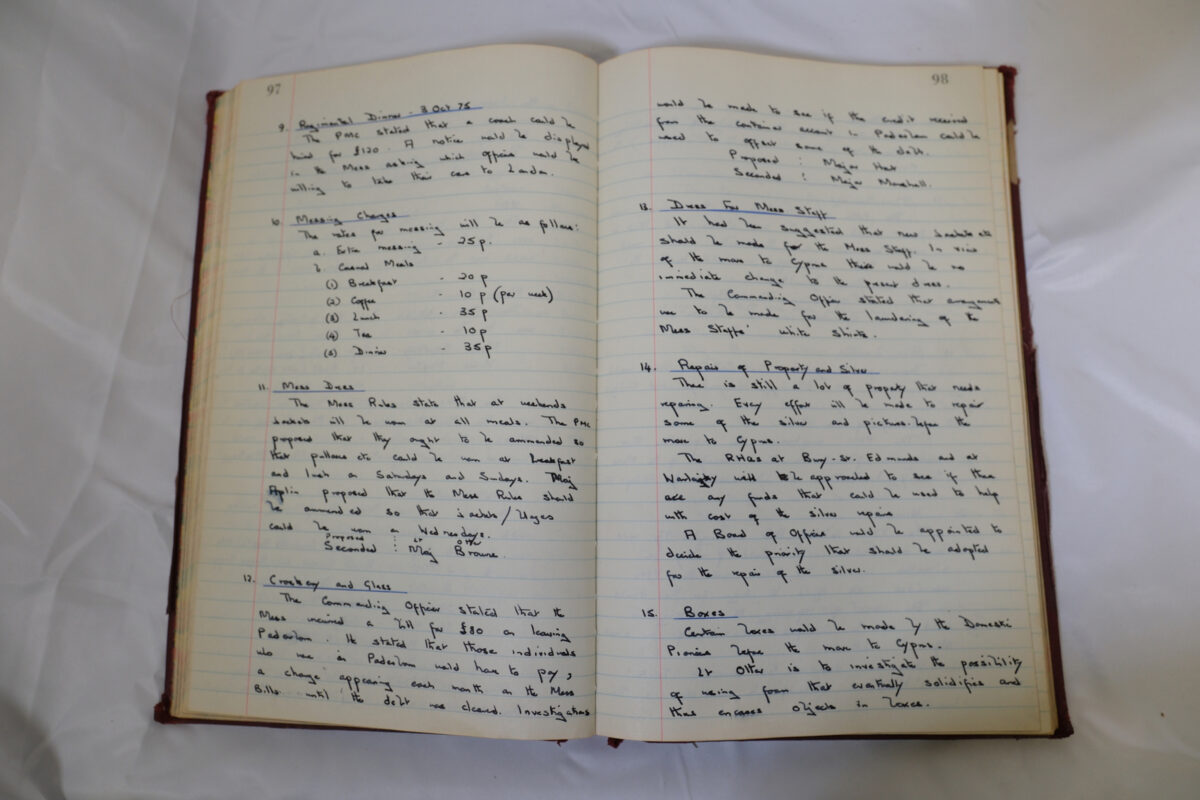 97
9. Regimental Dinner - 3 Oct 75
The PMC stated that a coach could be
hired for £120. A notice would be displayed
in the Mess asking which officers would be
willing to take their cars to London.
Messing Charges
The rates for messing will be as follows:
a. Extra messing - 25p.
b. Casual Meals
(1) Breakfast - 20p
(2) Coffee - 10p (per week)
(3) Lunch - 35p
(4) Tea - 10p
(5) Dinner - 35p
11. Mess Dress
The Mess Rules state that at weekends
jackets will be worn at all meals. The PMC
proposed that they ought to be ammended so
that pullovers etc could be worn at breakfast
and lunch on Saturdays and Sundays. Maj
Aplin proposed that the Mess Rules should
be ammended so that jackets/
could be worn on Wednesdays.
Proposed : Lt Otter
Seconded : Maj Browne.
12. Crockery and Glass
The Commanding Officer stated that the
Mess incurred a bill for £80 on leaving
Paderborn. He stated that those individuals
who were in Paderborn would have to pay,
a charge appearing each month on the Mess
Bills until the debt was cleared. Investigations
98
would be made to see if the credit received
from the container account in Paderborn could be
used to offset some of the debt.
Proposed : Major Hart
Seconded : Major Marshall.
13. Dress For Mess Staff
It had been suggested that new jackets etc
should be made for the Mess Staff. In view
of the move to Cyprus there would be no
immediate change to the present dress.
The Commanding Officer stated that arrangements
were to be made for the laundering of the
Mess Staffs' white shirts.
14. Repair of Property and Silver
There is still a lot of property that needs
repairing. Every effort will be made to repair
some of the silver and pictures before the
move to Cyprus.
The RHQs at Bury-St. Edmunds and at
will be approached to see if there
are any funds that could be used to help
with cost of the silver repairs
A Board of Officers would be appointed to
decide the priority that should be adopted
for the repair of the silver.
15. Boxes
Certain boxes would be made by the Domestic
Pioneer before the move to Cyprus.
Lt Otter is to investigate the possibility
of using foam that eventually solidifies and
thus encases objects in boxes.